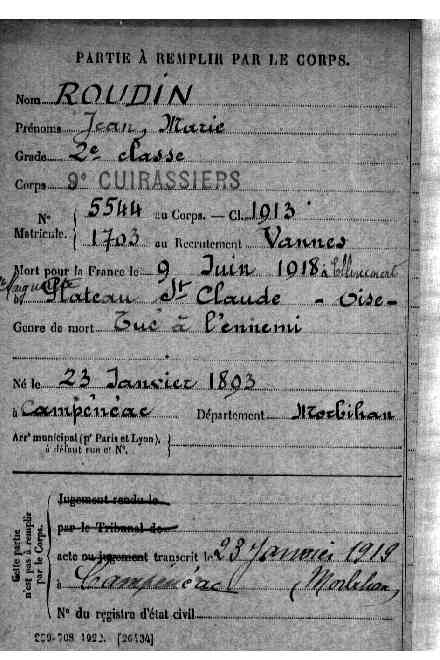 PARTIE À REMPLIR PAR LE CORPS.
Nom ROUDIN
Prénoms Jean, Marie
Grade 2e classe
Corps 9e CUIRASSIERS
Nº Matricule. { 5544 au Corps. — Cl. 1913
1703 au Recrutement Vannes
Mort pour la France le 9 Juin 1918 à Ellincourt
à Plateau St Claude - Oise -
Genre de mort Tué à l'ennemi
Né le 23 Janvier 1893
à Campénéac Département Morbihan
Arrt municipal (pr Paris et Lyon),
à défaut rue et Nº.
Cette partie n'est pas à remplir par le Corps.
Jugement rendu le
par le Tribunal de
acte ou jugement transcrit le 23 Janvier 1919
à Campénéac (Morbihan)
Nº du registre d'état civil
1922. [26434]